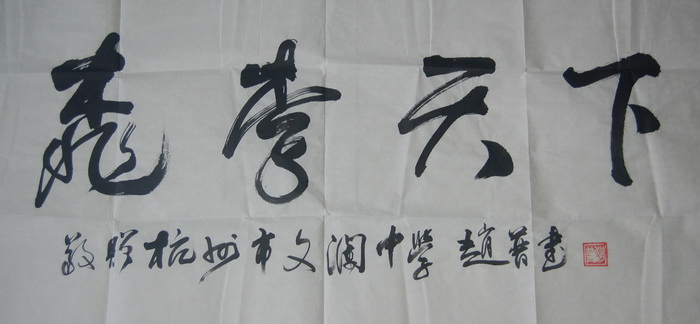 桃李天下
敬贈杭州市文瀾中學 趙普書